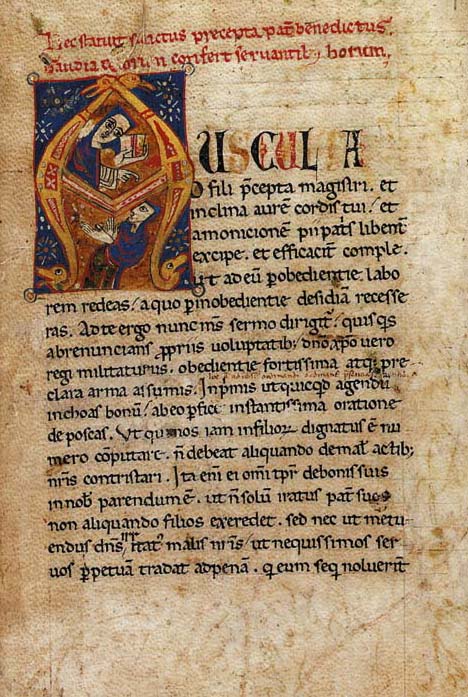 Hec statuit sanctus precepta pat̄ benedictus.
Gaudia q̄ ori n̄ confert servantib; horum,
AUSCULTA
O fili p̄cepta magistri. et
inclina aurē cordis tui. et
amonicionē pii pat̄s libent̄
excipe. et efficacit̄ comple.
Ut ad eū p̄ obedientie labo
rem redeas. a quo p̄ inobedientie desidiā recesse
ras. Ad te ergo nunc m̄s sermo dirigit̄. quisq̄s
abrenuncians p̄priis voluptatib; dn̄o xp̄o uero
regi militaturus. obedientie fortissima atq; pre-
clara arma assumis. Inp̄mis ut quicq̄d agendū
inchoas bonū / ab eo p̄fici instantissima oratione
deposcas. Ut qui nos iam in filioꝝ dignatus ē nu
mero cōputarc̄. n̄ debeat aliquando de mal̄ actib;
nr̄is contristari. Ita eni ei omi tp̄r de bonis suis
in nob̄ parendum ē. ut n̄ solū iratus pat̄ suos
non aliquando filios exeredet. sed nec ut metu-
endus dn̄s irritat᾽ malis nr̄is / ut nequissimos ser
uos p̄petuā tradat ad penā. q̄ eum seq̄ noluerīt